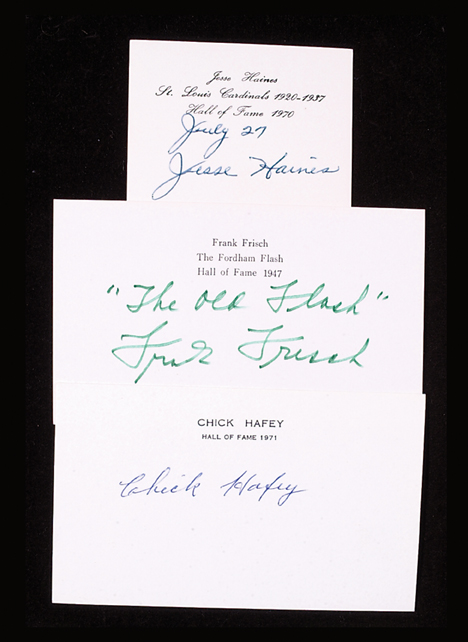 Jesse Haines
St. Louis Cardinals 1920-1937
Hall of Fame 1970
July 27
Jesse Haines
Frank Frisch
The Fordham Flash
Hall of Fame 1947
"The old Flash"
Frank Frisch
CHICK HAFEY
HALL OF FAME 1971
Chick Hafey